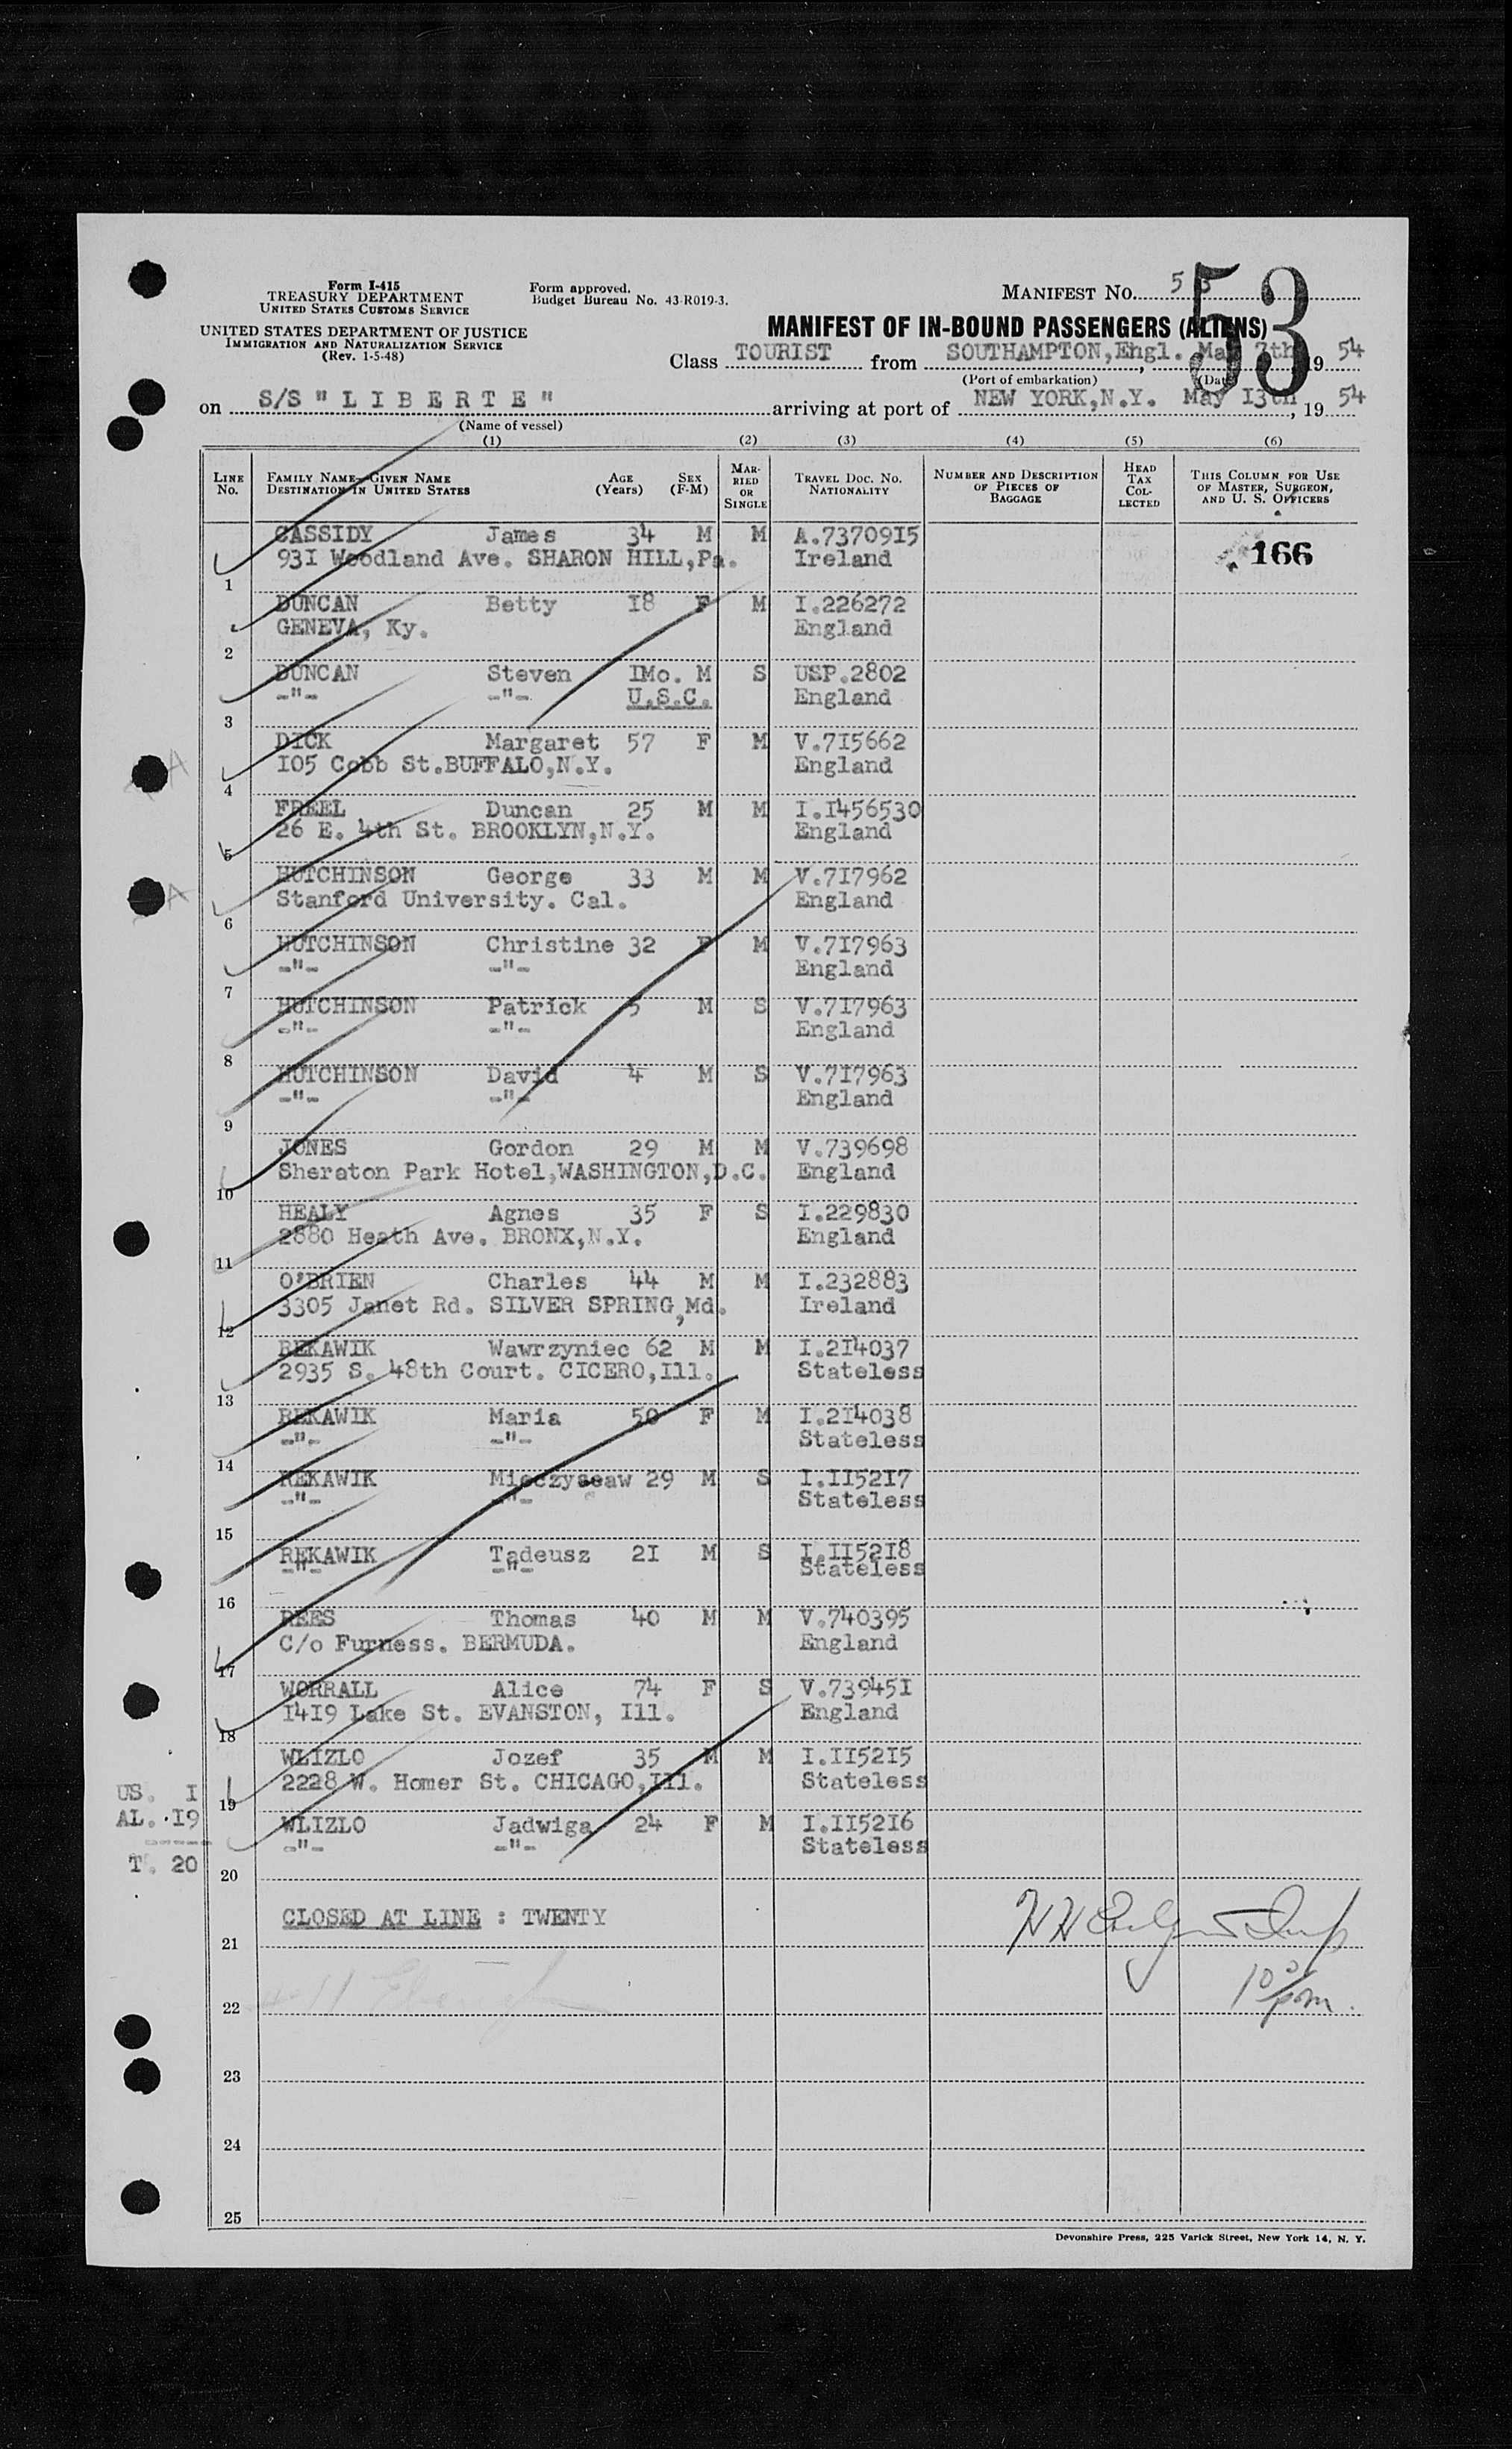 Form I-415
TREASURY DEPARTMENT
UNITED STATES CUSTOMS SERVICE
UNITED STATES DEPARTMENT OF JUSTICE
IMMIGRATION AND NATURALIZATION SERVICE
(Rev. 1-5-48)
Form approved.
Budget Bureau No. 43-R019-3.
MANIFEST No. 53
53
MANIFEST OF IN-BOUND PASSENGERS (ALIENS)
Class TOURIST from SOUTHAMPTON,Engl. May 7th, 1954
(Port of embarkation) (Date)
on S/S "LIBERTE" arriving at port of NEW YORK,N.Y. May 13th, 1954
(Name of vessel)
(1) (2) (3) (4) (5) (6)
LINE No. FAMILY NAME—GIVEN NAME DESTINATION IN UNITED STATES AGE (Years) SEX (F-M) MARRIED OR SINGLE TRAVEL DOC. NO. NATIONALITY NUMBER AND DESCRIPTION OF PIECES OF BAGGAGE HEAD TAX COLLECTED THIS COLUMN FOR USE OF MASTER, SURGEON, AND U. S. OFFICERS
CASSIDY James 34 M M A.7370915
931 Woodland Ave. SHARON HILL,Pa. Ireland 166
1
DUNCAN Betty 18 F M I.226272
GENEVA, Ky. England
2
DUNCAN Steven 1Mo. M S USP.2802
-"- -"- U.S.C. England
3
DICK Margaret 57 F M V.715662
105 Cobb St.BUFFALO,N.Y. England
4
FREEL Duncan 25 M M I.1456530
26 E. 4th St. BROOKLYN,N.Y. England
5
HUTCHINSON George 33 M M V.717962
Stanford University. Cal. England
6
HUTCHINSON Christine 32 F M V.717963
-"- -"- England
7
HUTCHINSON Patrick 5 M S V.717963
-"- -"- England
8
HUTCHINSON David 4 M S V.717963
-"- -"- England
9
JONES Gordon 29 M M V.739698
Sheraton Park Hotel,WASHINGTON,D.C. England
10
HEALY Agnes 35 F S I.229830
2880 Heath Ave. BRONX,N.Y. England
11
O'BRIEN Charles 44 M M I.232883
3305 Janet Rd. SILVER SPRING,Md. Ireland
12
REKAWIK Wawrzyniec 62 M M I.214037
2935 S. 48th Court. CICERO,Ill. Stateless
13
REKAWIK Maria 50 F M I.214038
-"- -"- Stateless
14
REKAWIK Mieczyseaw 29 M S I.115217
-"- -"- Stateless
15
REKAWIK Tadeusz 21 M S I.115218
-"- -"- Stateless
16
REES Thomas 40 M M V.740395
C/o Furness. BERMUDA. England
17
WORRALL Alice 74 F S V.739451
1419 Lake St. EVANSTON, Ill. England
18
WLIZLO Jozef 35 M M I.115215
2228 W. Homer St. CHICAGO,Ill. Stateless
US. 1
19
AL. 19
WLIZLO Jadwiga 24 F M I.115216
-"- -"- Stateless
T. 20
20
CLOSED AT LINE : TWENTY
21
22
23
24
25
Devonshire Press, 225 Varick Street, New York 14, N. Y.